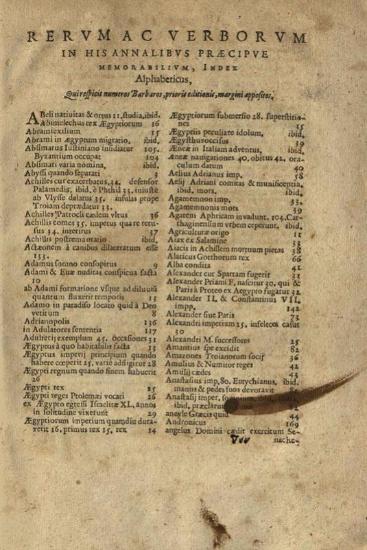 RERVM AC VERBORVM
IN HIS ANNALIBVS PRÆCIPVE
MEMORABILIVM, INDEX
Alphabeticus,
Qui respicit numeros Barbaros, prioris editionis, margini appositos.
ABeli natiuitas & ortus 11, studia, ibid.
Abimelechus rex Ægyptiorum 16
Abrami exsilium 15
Abrami in Ægyptum migratio, ibid,
Absimarus Iustiniano inuidiatur 105.
Byzantium occupat 104
Absimari varia nomina, ibid,
Abyssi quando separati 3
Achilles cur exacerbatus, 34. defensor
Palamedis, ibid, è Phthia 31, inuisus
ab Vlysse dolatus 35. insulas prope
Troiam depræđatur 31.
Achilles Patrocli cædem vletus 36
Achilles comes 35. impetus quare retun-
sus 34. interitus 37
Achillis postrema oratio ibid,
Actæonem à canibus dilaceratum esse
133.
Adamus satano conspicitus
Adami & Euæ nuditas conspicua facta
10
ab Adami formatione vsque ad diluuiū
quantum fluxerit temporis 15
Adamo in paradiso locato quid à Deo
vetitum 8
Adrianopolis 136
in Adulatores sententia 117
Adulterij exemplum 45. occasiones 31
Ægyptus à quo habitabilis facta 15
Ægyptus imperij principium quando
habere cœperit 25, vario adfigitur 28
Ægypti regnum quando finem habuerit
26
Ægypti rex 25
Ægypti reges Ptolemæi vocati 26
ex Ægypto egressi Israelitæ XL, annos
in solitudine vixerunt 29
Ægyptiorum imperium quandiu dura-
uerit 16, primus rex 15, rex 14
Ægyptiorum submersio 28. superstitio-
nes 15
Ægyptiis peculiare idolum, ibid,
Ægysthus occisus 39
Æneæ in Italiam aduentus, ibid,
Æneæ nauigationes 40, obitus 42, ora-
culum datum 40
Aelius Adrianus imp, 58
Aelij Adriani comitas & munificentia,
ibid, mors, ibid,
Agamemnon imp, 33.
Agamemnonis mors 39
Agarem Aphricam inuadunt, 104. Car-
thaginensium vrbem ceperunt, ibid,
Agriculturæ origo 11
Aiax ex Salamine 33
Aiacis in Achillem mortuum pietas 38
Alaricus Gotthorum rex 66
Alba condita 41
Alexander cur Spartam fugerit 32
Alexander Priami F, nascitur 30, qui &
Paris à Proteo ex Aegypto fugatur 32.
Alexander II, & Constantinus VII,
impp, 142
Alexander siue Paris 72
Alexandri imperium 25, infelices casus
30
Alexandri M. successores 25
Amantius spe excidit 82
Amazones Troianorum socij 36
Amulius & Numitor reges 42
Amulij cædes 43
Anastasius imp, 80, Eutychianus, ibid,
manus & pedes suos deuorat 81
Anastasij imper,
ibid, præclarum
ancyle Græcis quid 44
Andronicus 169
angelus Domini cædit exercitum Se-
Vvv nache-